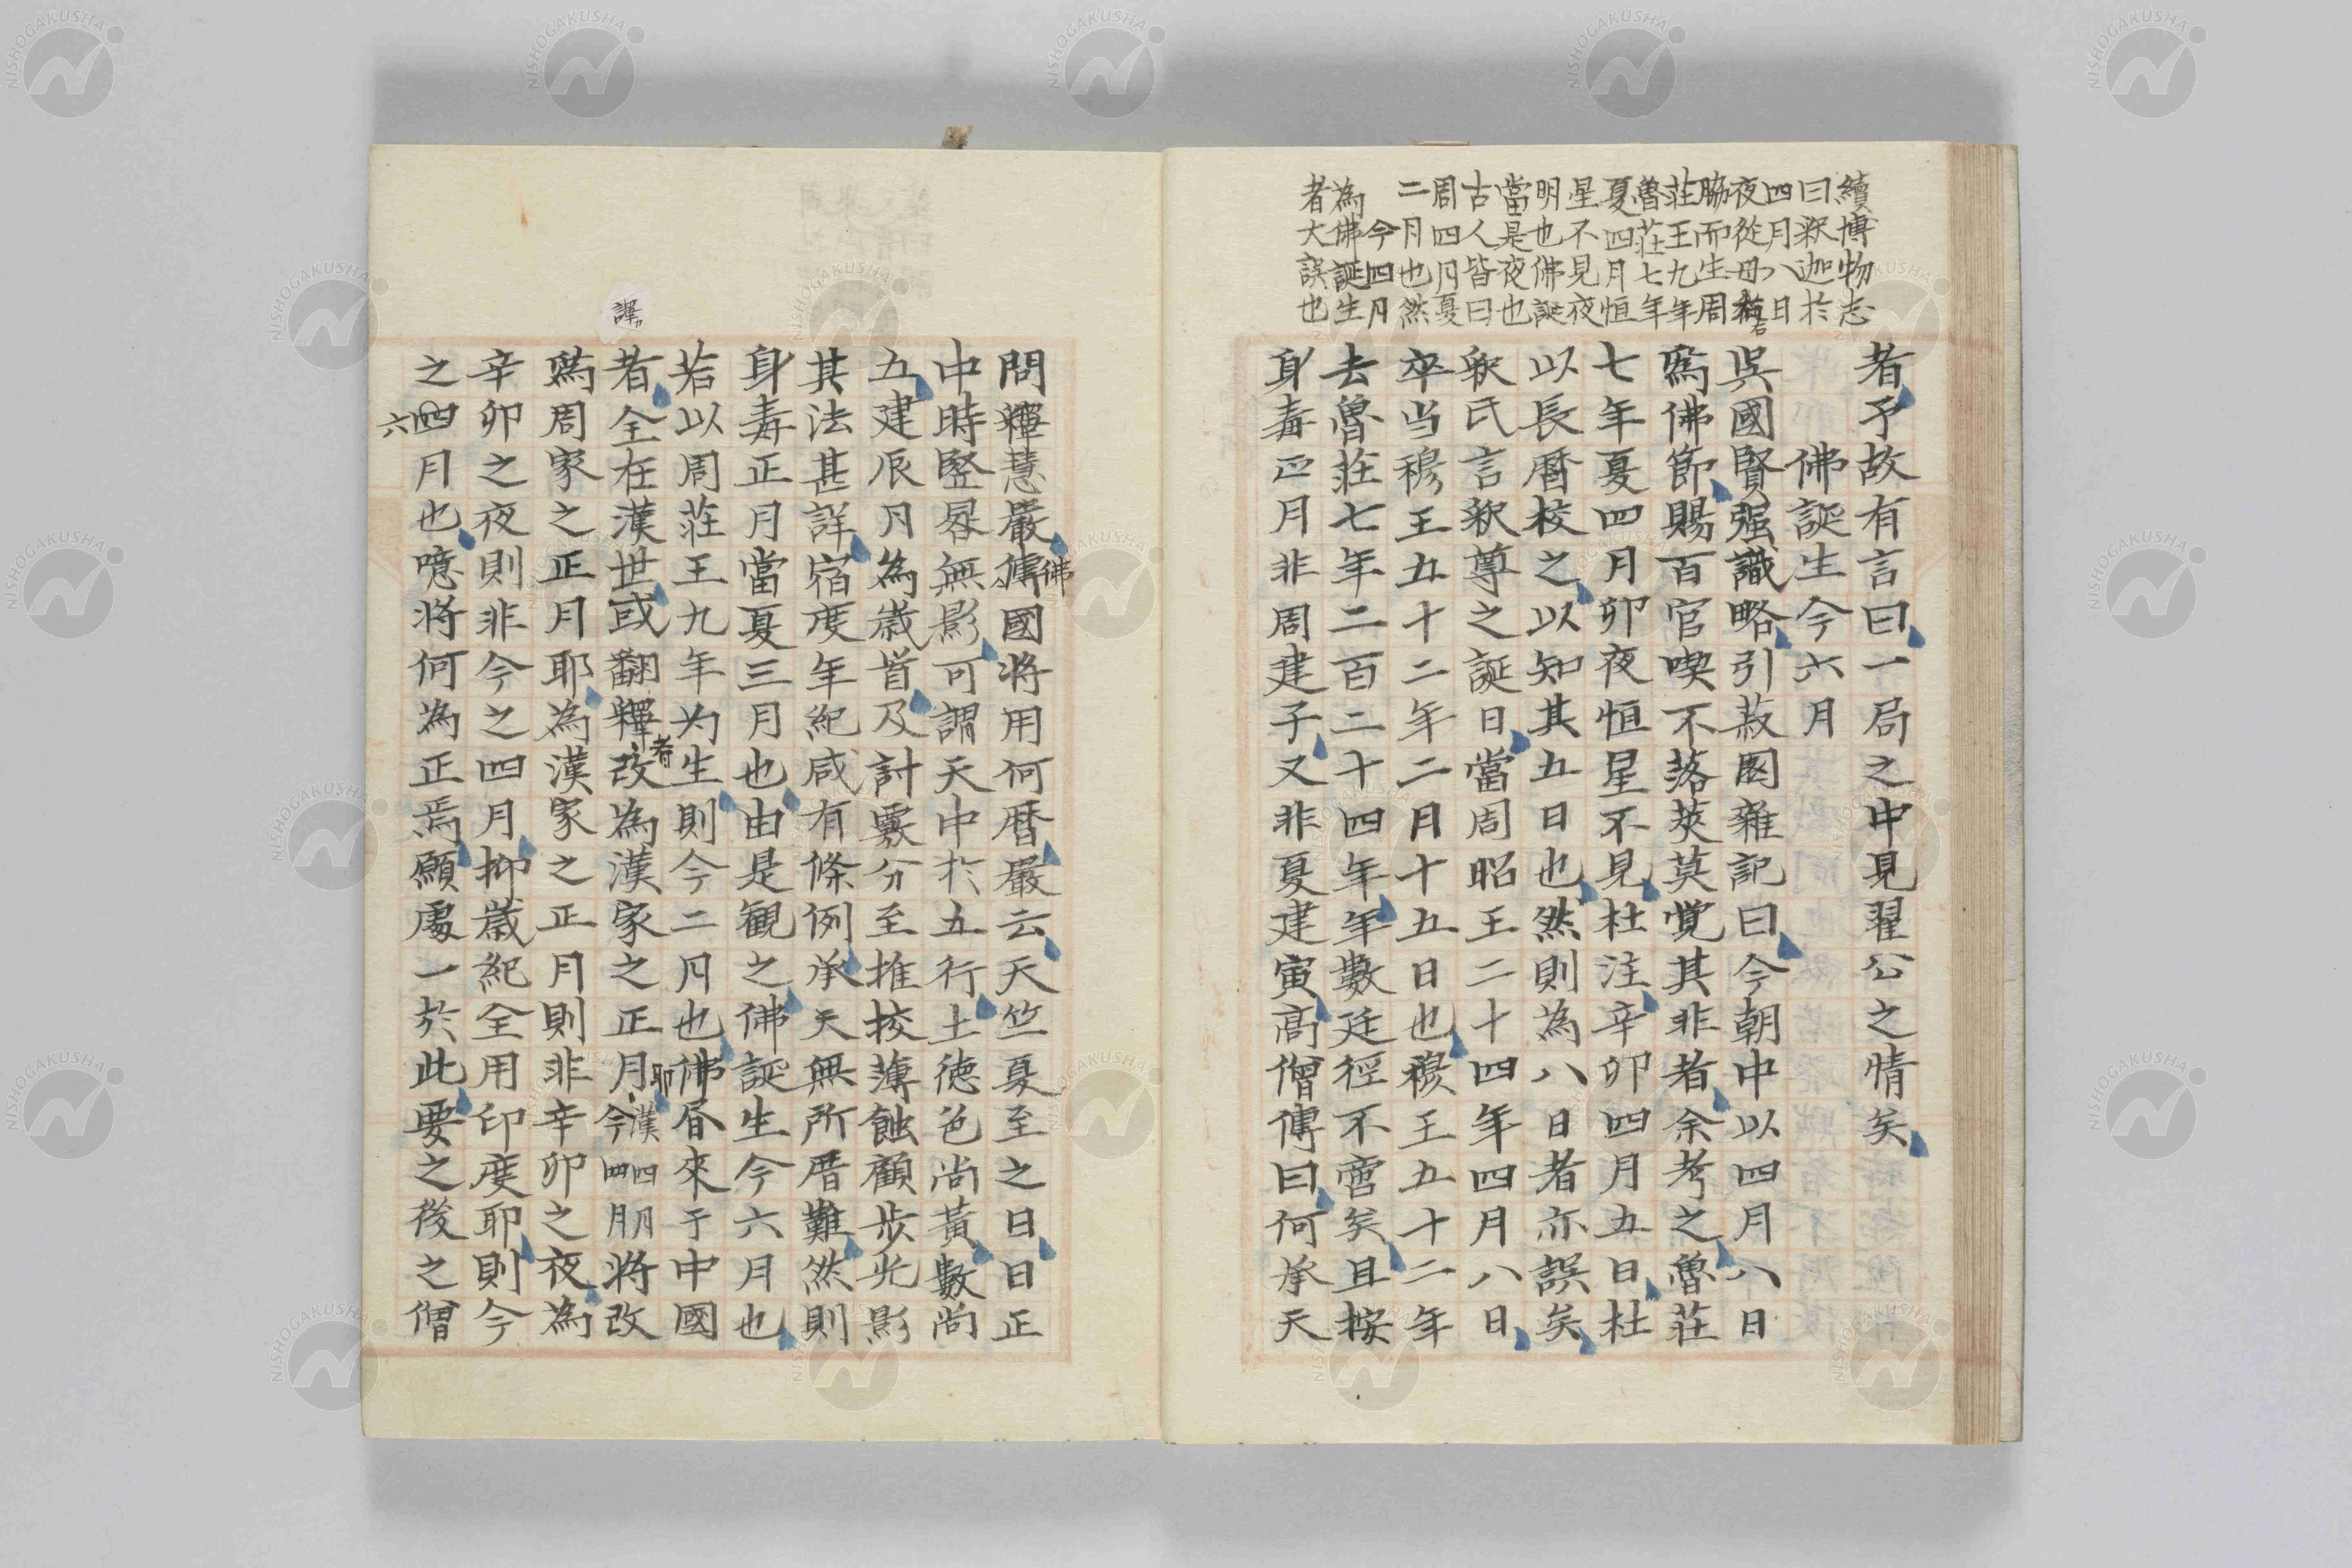 續博物志
曰釈迦於
四月八日
夜從母右
脇而生周
莊王九年
魯莊七年
夏四月恒
星不見夜
明也佛誕
當是夜也
古人皆曰
周四月夏
二月也然
今四月
為佛誕生
者大誤也
者予故有言曰一局之中見翟公之情矣
佛誕生今六月
吳國賢强識略引菽園雜記曰今朝中以四月八日
爲佛節賜百官喫不落莢莫覚其非者余考之魯莊
七年夏四月卯夜恒星不見杜注辛卯四月五日杜
以長暦校之以知其五日也然則為八日者亦誤矣
釈氏言釈尊之誕日當周昭王二十四年四月八日
卒当穆王五十二年二月十五日也穆王五十二年
去魯莊七年二百二十四年年數廷徑不啻矣且按
身毒正月非周建子又非夏建寅高僧傳曰何承天
問釋慧嚴佛國將用何暦嚴云天竺夏至之日日正
中時竪晷無影可謂天中於五行土徳色尚黃數尚
五建辰月為歳首及計覈分至推挍薄蝕顧歩光影
其法甚詳宿度年紀咸有條例承天無所厝難然則
身毒正月當夏三月也由是観之佛誕生今六月也
若以周莊王九年为生則今二月也佛昏來于中國
者全在漢世或翻譯者改為漢家之正月耶漢四月今四月將改
爲周家之正月耶為漢家之正月則非辛卯之夜為
辛卯之夜則非今之四月抑歳紀全用印度耶則今
之六月也噫将何為正焉願處一於此要之後之僧
譯
NISHOGAKUSHA